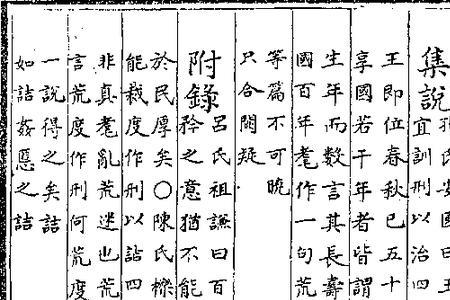 集說
孔氏安國曰王
宜訓刑以治四
王即位春秋已五十
享國若干年者皆謂
生年而數言其長壽
國百年耄作一句荒
等篇不可曉
只合闕疑
附錄
呂氏祖謙曰百
矜之意猶不能
於民厚矣○陳氏櫟
能裁度作刑以詰四
非真耄亂荒迷也荒
言荒度作刑何荒度
一說得之矣詰
如詰姦慝之詰